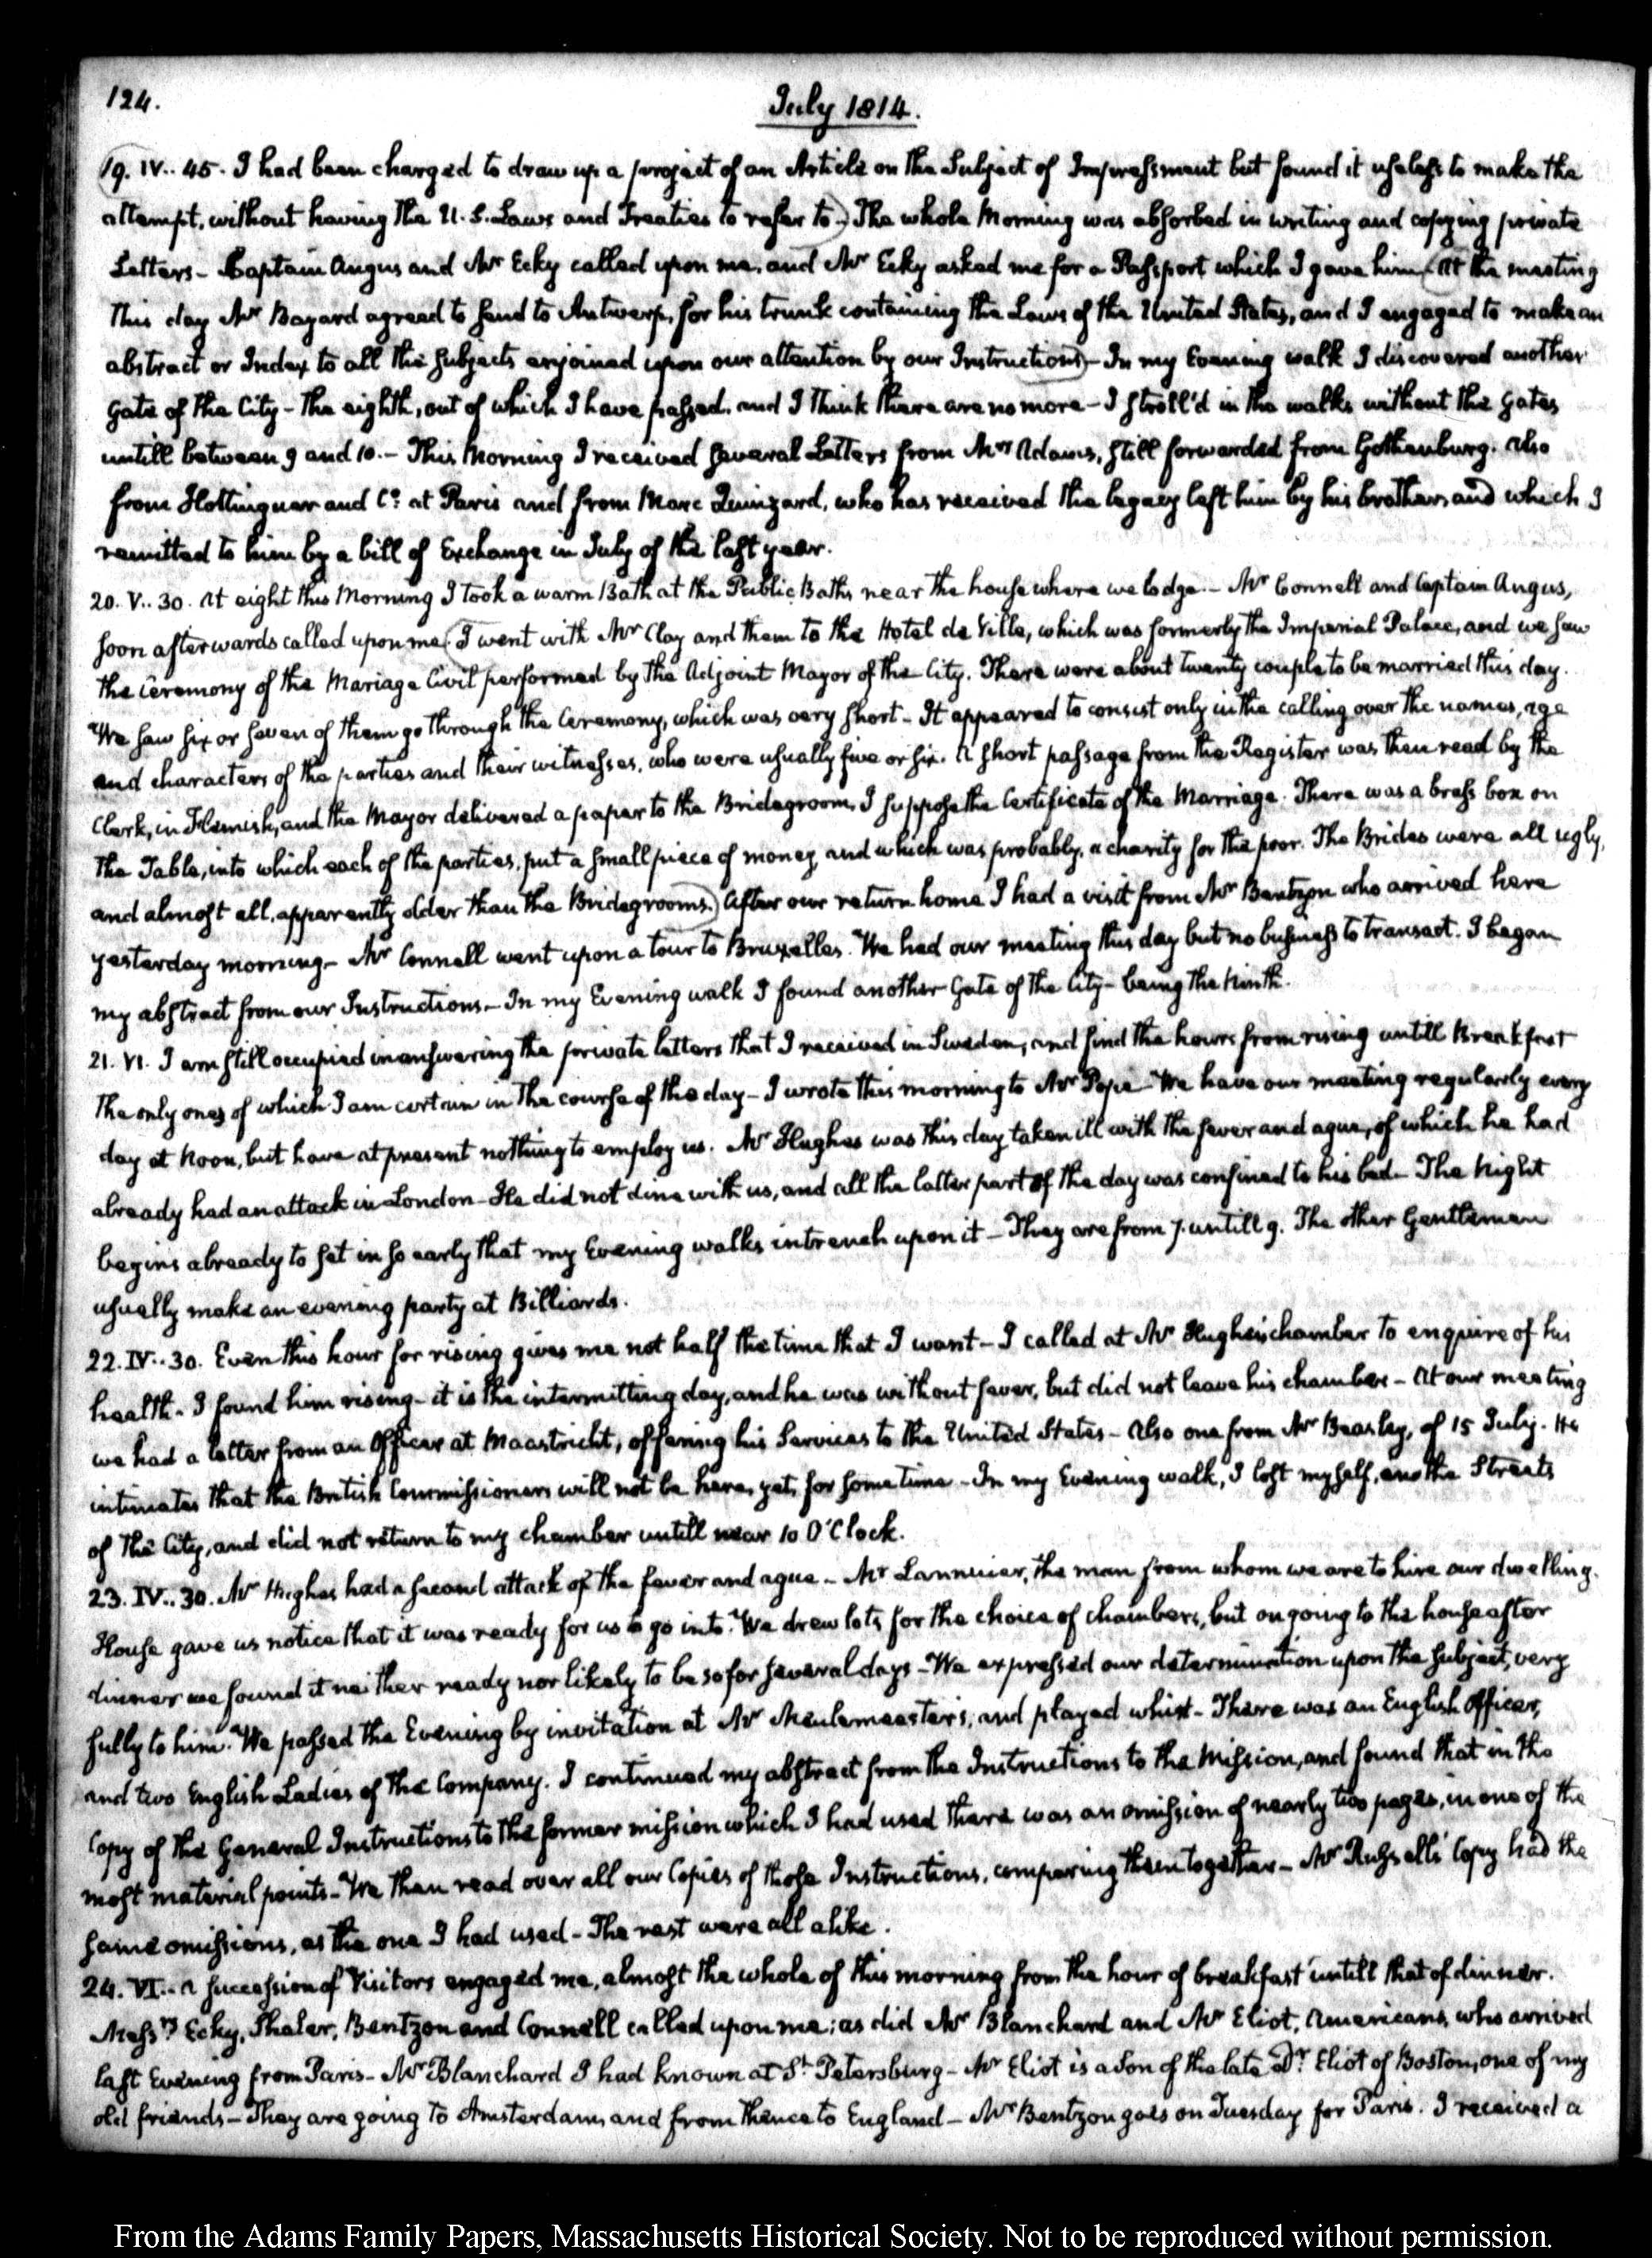 124.
July 1814.
19. IV.. 45. I had been charged to draw up a project of an Article on the Subject of Impressment but found it useless to make the
attempt, without having the U. S. Laws and Treaties to refer to) The whole Morning was absorbed in writing and copying private
Letters – Captain Angus and Mr Ecky called upon me, and Mr Ecky asked me for a Passport which I gave him (At the meeting
This day Mr Bayard agreed to send to Antwerp, for his trunk containing the Laws of the United States, and I engaged to make an
abstract or Index to all the subjects enjoined upon our attention by our Instructions) – In my Evening walk I discovered another
gate of the City – the eighth, out of which I have passed, and I think there are no more – I stroll'd in the walks without the gates
untill between 9 and 10. – This Morning I received several Letters from Mrs Adams, still forwarded from Gothenburg. Also
from Hottinguer and Co. at Paris and from Marc Quinzard, who has received the legacy left him by his brother, and which I
remitted to him by a bill of Exchange in July of the last year.
20. V.. 30. At eight this Morning I took a warm Bath at the Public Baths near the house where we lodge. – Mr Connell and Captain Angus,
soon afterwards called upon me. (I went with Mr Clay and them to the Hotel de Ville, which was formerly the Imperial Palace, and we saw
the ceremony of the Mariage Civil performed by the Adjoint Mayor of the City. There were about twenty couple to be married this day.
We saw six or seven of them go through the Ceremony, which was very short – It appeared to consist only in the calling over the names, age
and characters of the parties and their witnesses, who were usually five or six. A short passage from the Register was then read by the
Clerk, in Flemish, and the Mayor delivered a paper to the Bridegroom, I suppose the Certificate of the Marriage. There was a brass box on
the Table, into which each of the parties, put a small piece of money, and which was probably, a charity for the poor. The Brides were all ugly,
and almost all, apparently older than the Bridegrooms.) After our return home I had a visit from Mr Bentzon who arrived here
yesterday morning – Mr Connell went upon a tour to Bruxelles. We had our meeting this day but no business to transact. I began
my abstract from our Instructions. – In my Evening walk I found another Gate of the City – being the Ninth.
21. VI. I am still occupied in answering the private letters that I received in Sweden, and find the hours from rising untill Breakfast
the only ones of which I am certain in the course of the day – I wrote this morning to Mr Pope – We have our meeting regularly every
day at Noon, but have at present nothing to employ us. Mr Hughes was this day taken ill with the fever and ague, of which he had
already had an attack in London – He did not dine with us, and all the latter part of the day was confined to his bed – The Night
begins already to set in so early that my Evening walks intrench upon it – They are from 7. untill 9. The other Gentlemen
usually make an evening party at Billiards.
22. IV.. 30. Even this hour for rising gives me not half the time that I want – I called at Mr Hughes's chamber to enquire of his
health. I found him rising – it is the intermitting day, and he was without fever, but did not leave his chamber – At our meeting
we had a letter from an Officer at Maastricht, offering his Services to the United States – Also one from Mr Beasley, of 15 July. He
intimates that the British Commissioners will not be here, yet, for some time – In my Evening walk, I lost myself, in the Streets
of the City, and did not return to my chamber untill near 10 O'Clock.
23. IV.. 30. Mr Hughes had a second attack of the fever and ague – Mr Lannuier, the man from whom we are to hire our dwelling
House gave us notice that it was ready for us to go into. We drew lots for the choice of chambers, but on going to the house after
dinner we found it neither ready nor likely to be so for several days – We expressed our determination upon the subject, very
fully to him. We passed the Evening by invitation at Mr Meulemeester's, and played whist – There was an English Officer,
and two English Ladies of the Company. I continued my abstract from the Instructions to the Mission, and found that in the
Copy of the General Instructions to the former mission which I had used there was an omission of nearly two pages, in one of the
most material points – We then read over all our Copies of those Instructions, comparing them together – Mr Russell's Copy had the
same omissions, as the one I had used – The rest were all alike.
24. VI.. A succession of Visitors engaged me, almost the whole of this morning from the hour of breakfast untill that of dinner.
Messrs Ecky, Shaler, Bentzon and Connell called upon me; as did Mr Blanchard and Mr Eliot, Americans, who arrived
last Evening from Paris – Mr Blanchard I had known at St. Petersburg – Mr Eliot is a Son of the late Dr. Eliot of Boston, one of my
old friends – They are going to Amsterdam, and from thence to England – Mr Bentzon goes on Tuesday for Paris. I received a
From the Adams Family Papers, Massachusetts Historical Society. Not to be reproduced without permission.